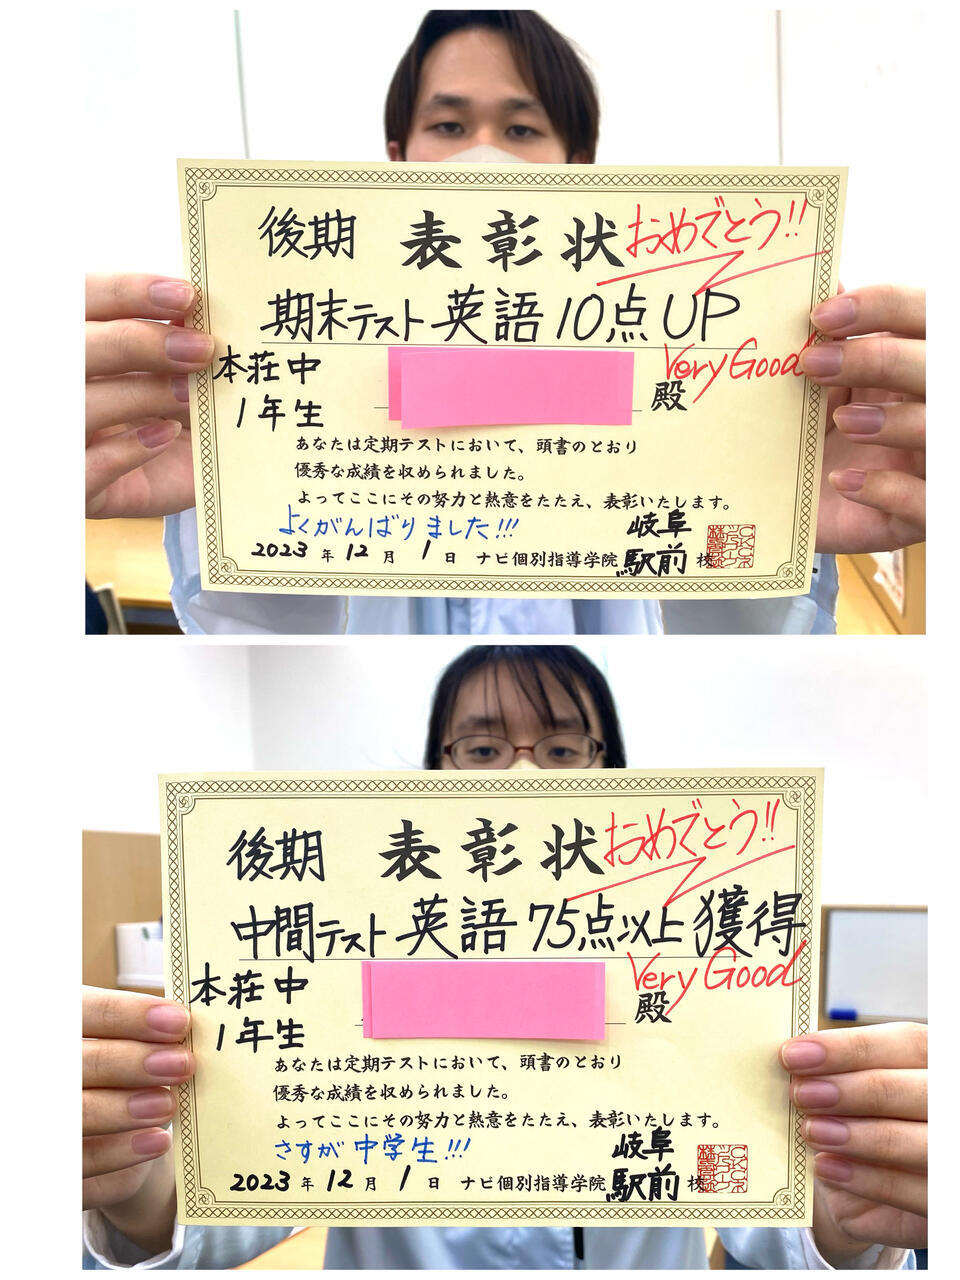 後期 表彰状 おめでとう!!
期末テスト 英語 10点UP
Very Good
本荘中
1年生
殿
あなたは定期テストにおいて、頭書のとおり
優秀な成績を収められました。
よってここにその努力と熱意をたたえ、表彰いたします。
よくがんばりました!!!
2023年12月1日 ナビ個別指導学院 岐阜駅前校
後期 表彰状 おめでとう!!
中間テスト 英語 75点以上獲得
Very Good
本荘中
1年生
殿
あなたは定期テストにおいて、頭書のとおり
優秀な成績を収められました。
よってここにその努力と熱意をたたえ、表彰いたします。
さすが中学生!!!
2023年12月1日 ナビ個別指導学院 岐阜駅前校